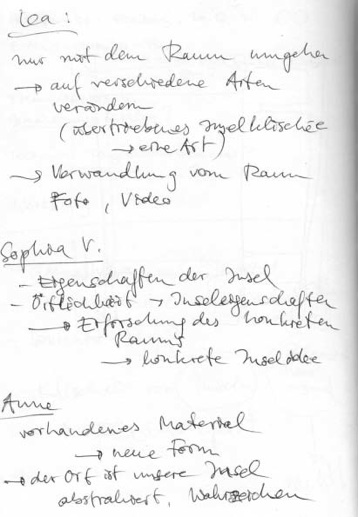 Lea:
nur mit dem Raum umgehen
→ auf verschiedene Arten
verändern
(übertriebenes Inselklischee
→ eine Art)
→ Verwandlung vom Raum
Foto, Video
Sophia V.
- Eigenschaften der Insel
- Örtlichkeit → Inseleigenschaften
→ Erforschung des konkreten
Raums
→ konkrete Inselidee
Anne
vorhandenes Material
→ neue Form
→ der Ort ist unsere Insel
abstrahiert, Wahrzeichen